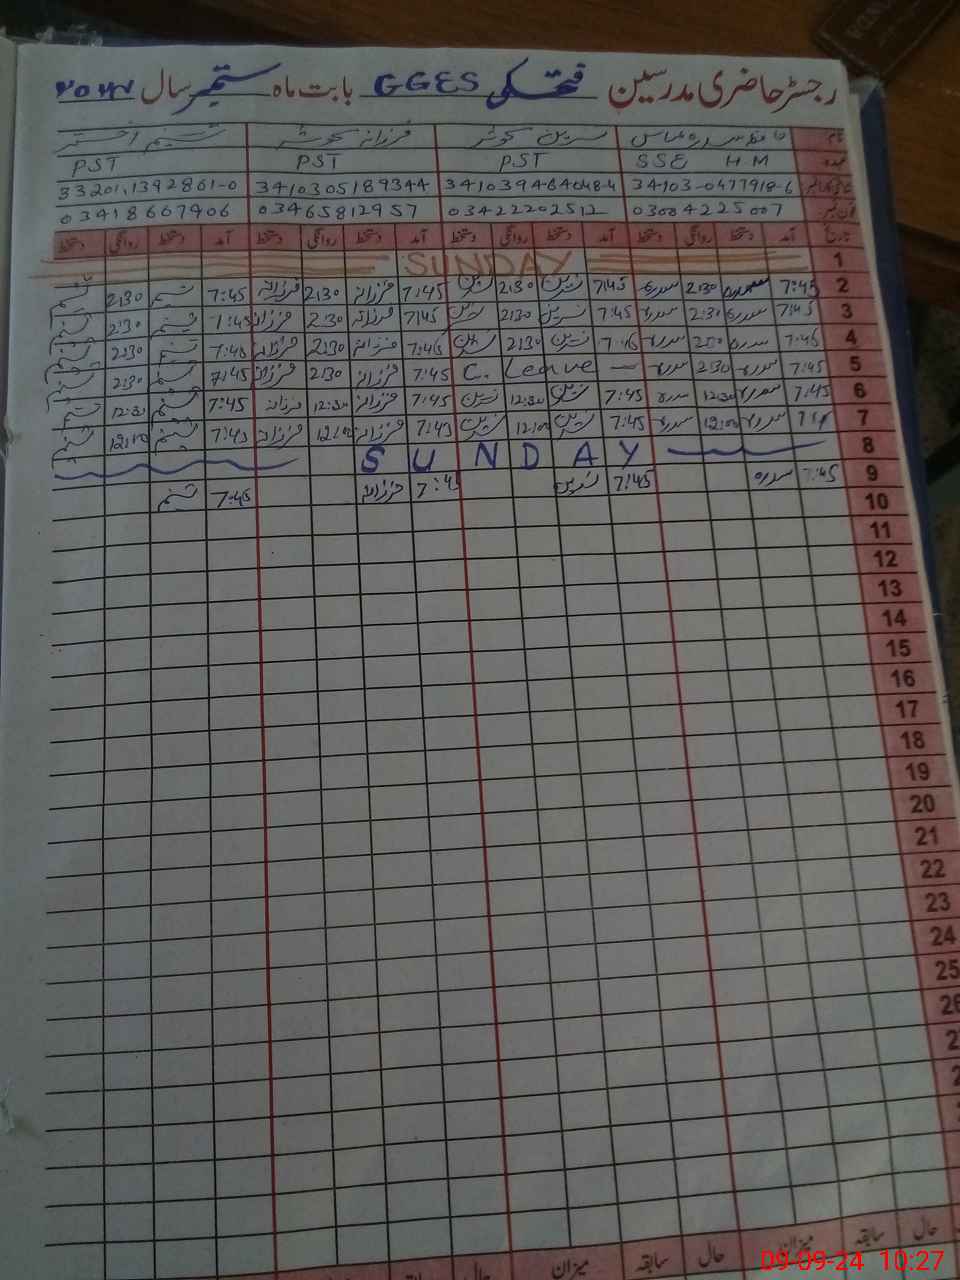 رجسٹر حاضری مدرسین فتحکی GGES بابت ماہ ستمبر سال ۲۰۲۴
نام سدرہ عباس نسرین کوثر فرزانہ کوثر شمیم اختر
عہدہ SSE HM PST PST PST
34103-0477918-6 3410394-64048-4 3410305189344 33201,1392861-0
فون نمبر 03004225007 03422202512 03465812957 03418667906
تاریخ آمد دستخط روانگی دستخط آمد دستخط روانگی دستخط آمد دستخط روانگی دستخط آمد دستخط روانگی دستخط
1 SUNDAY
2 7:45 سدرہ 2:30 سدرہ 7:45 نسرین 2:30 نسرین 7:45 فرزانہ 2:30 فرزانہ 7:45 شمیم 2:30 شمیم
3 7:45 سدرہ 2:30 سدرہ 7:45 نسرین 2:30 نسرین 7:45 فرزانہ 2:30 فرزانہ 7:45 شمیم 2:30 شمیم
4 7:45 سدرہ 2:30 سدرہ 7:45 نسرین 2:30 نسرین 7:45 فرزانہ 2:30 فرزانہ 7:45 شمیم 2:30 شمیم
5 7:45 سدرہ 2:30 سدرہ C. Leave 7:45 فرزانہ 2:30 فرزانہ 7:45 شمیم 2:30 شمیم
6 7:45 سدرہ 12:30 سدرہ 7:45 نسرین 12:30 نسرین 7:45 فرزانہ 12:30 فرزانہ 7:45 شمیم 12:30 شمیم
7 سدرہ 12:00 سدرہ 7:45 نسرین 12:00 نسرین 7:45 فرزانہ 12:00 فرزانہ 7:45 شمیم 12:00 شمیم
8 SUNDAY
9 7:45 سدرہ 7:45 نسرین 7:45 فرزانہ 7:45 شمیم
10
11
12
13
14
15
16
17
18
19
20
21
22
23
24
25
26
میزان سابقہ حال میزان سابقہ حال میزان سابقہ حال
09-09-24 10:27